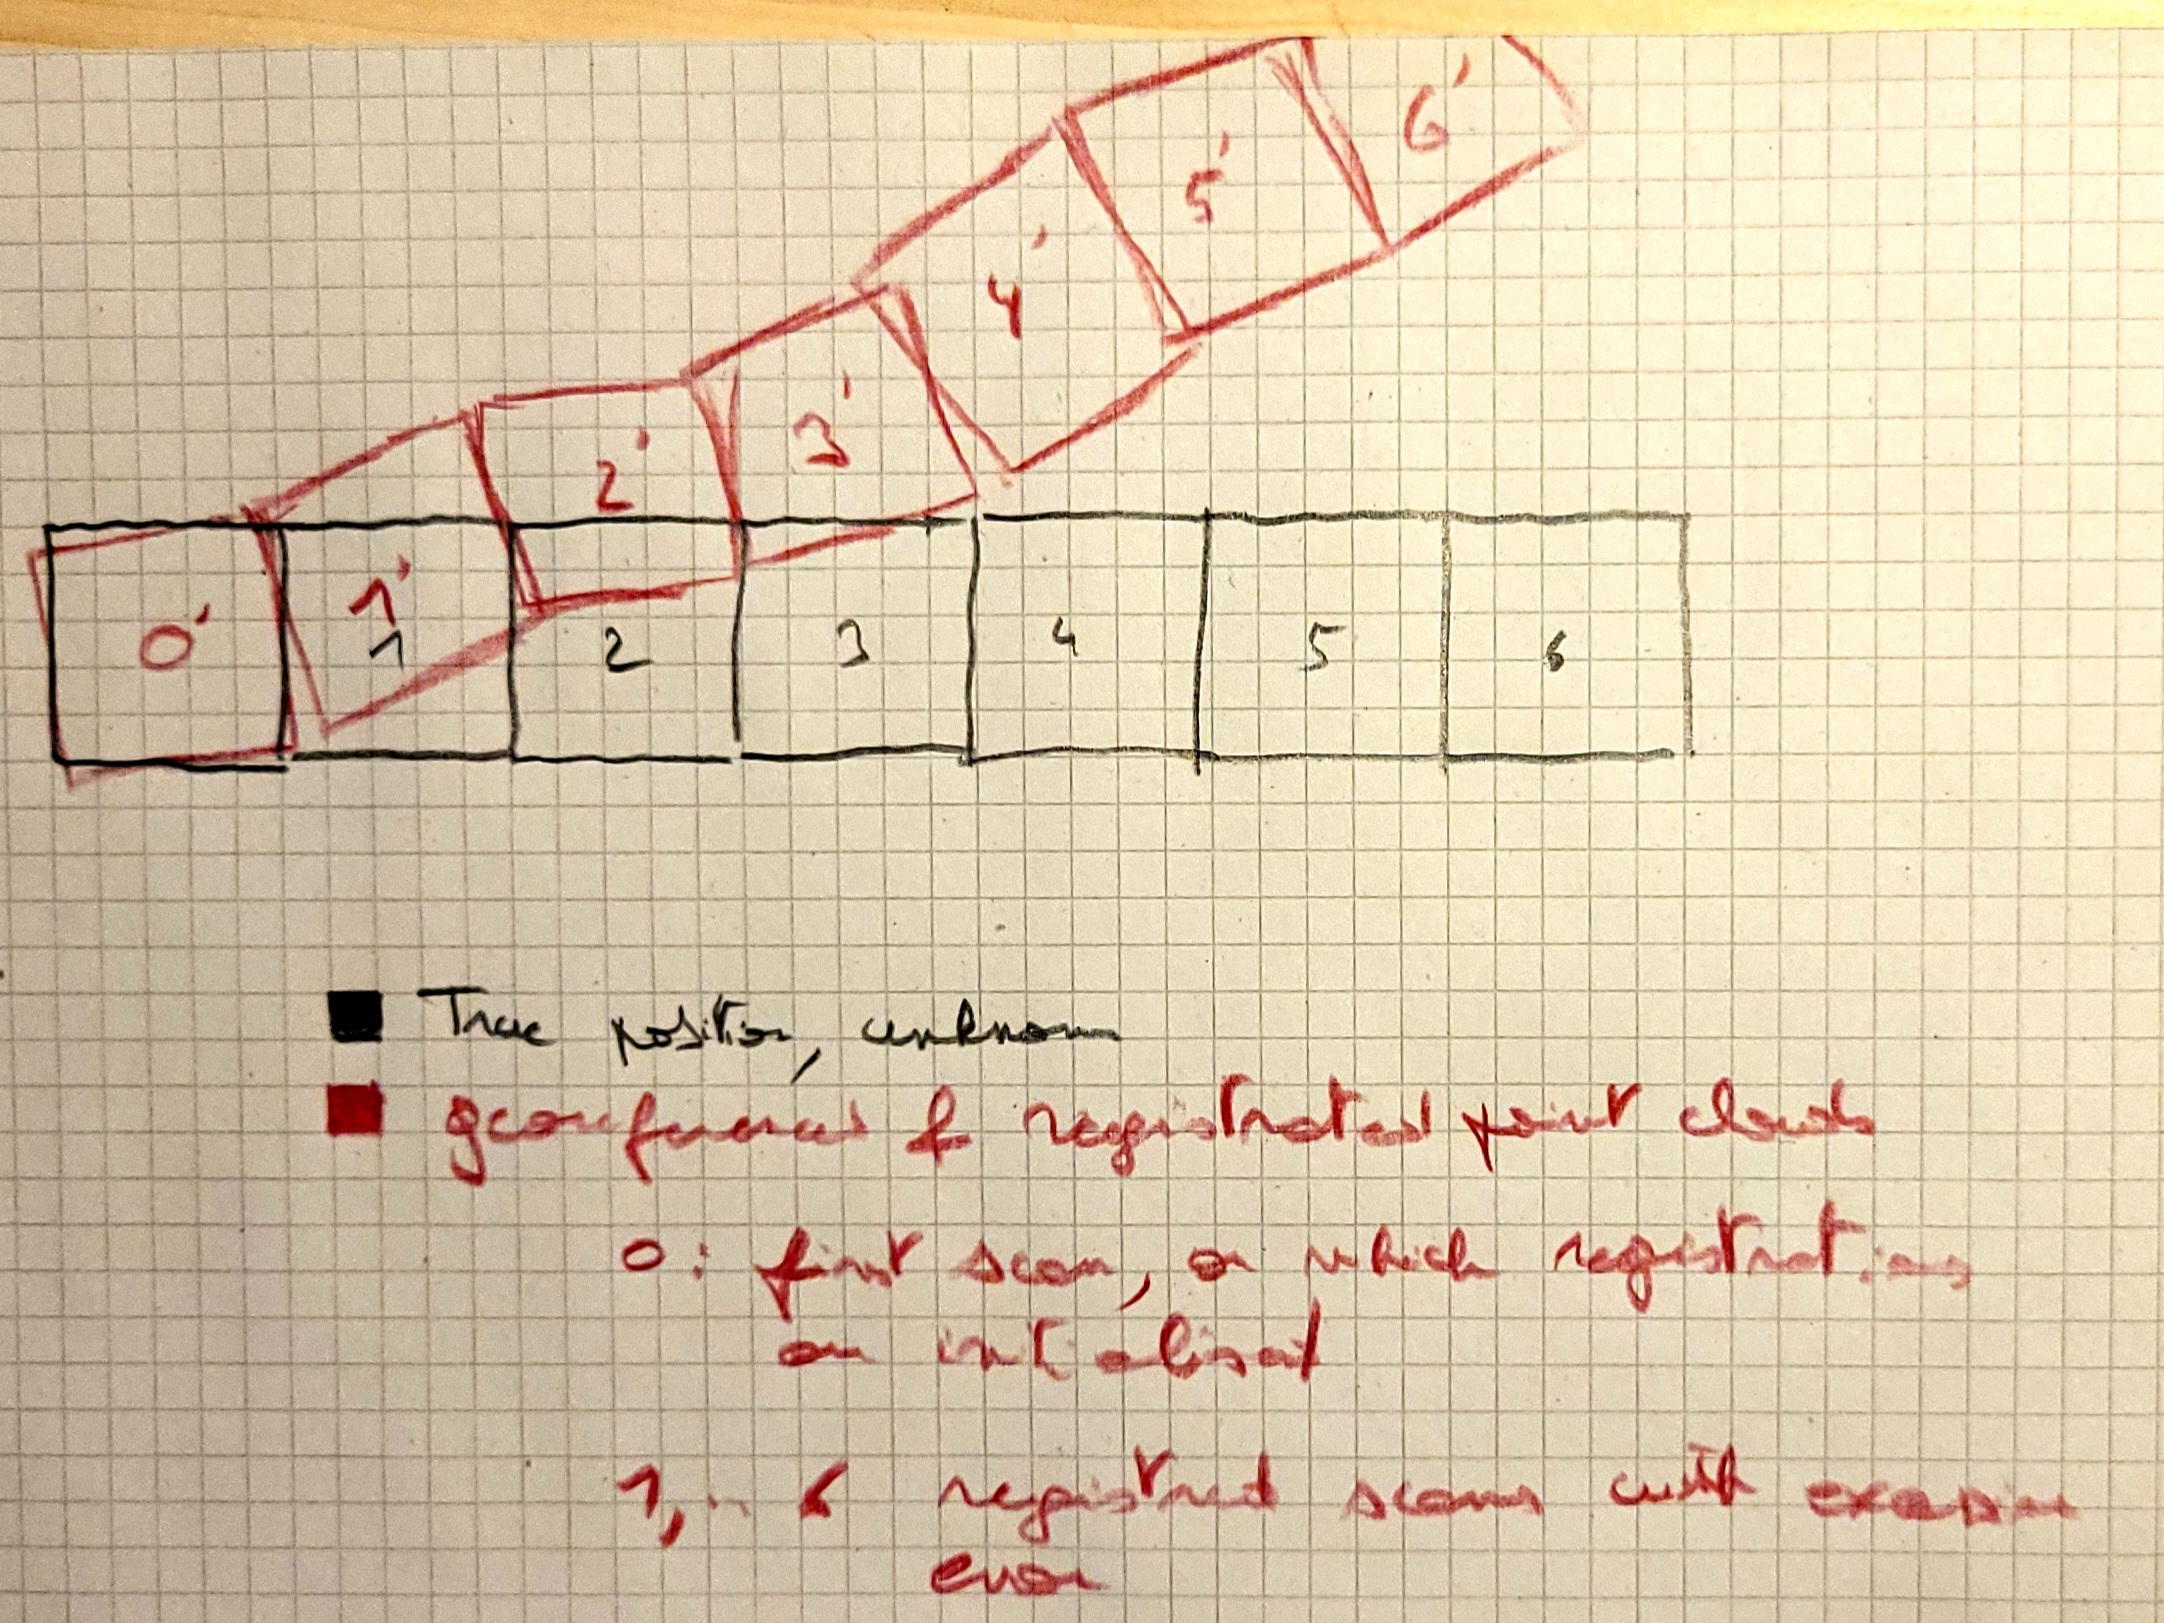 6'
5'
4'
3'
2'
0' 1'
1 2 3 4 5 6
True position, unknown
georeferenced & registrated point clouds
0: first scan, on which registrations
are initialised
1, .. 6 registred scans with
error